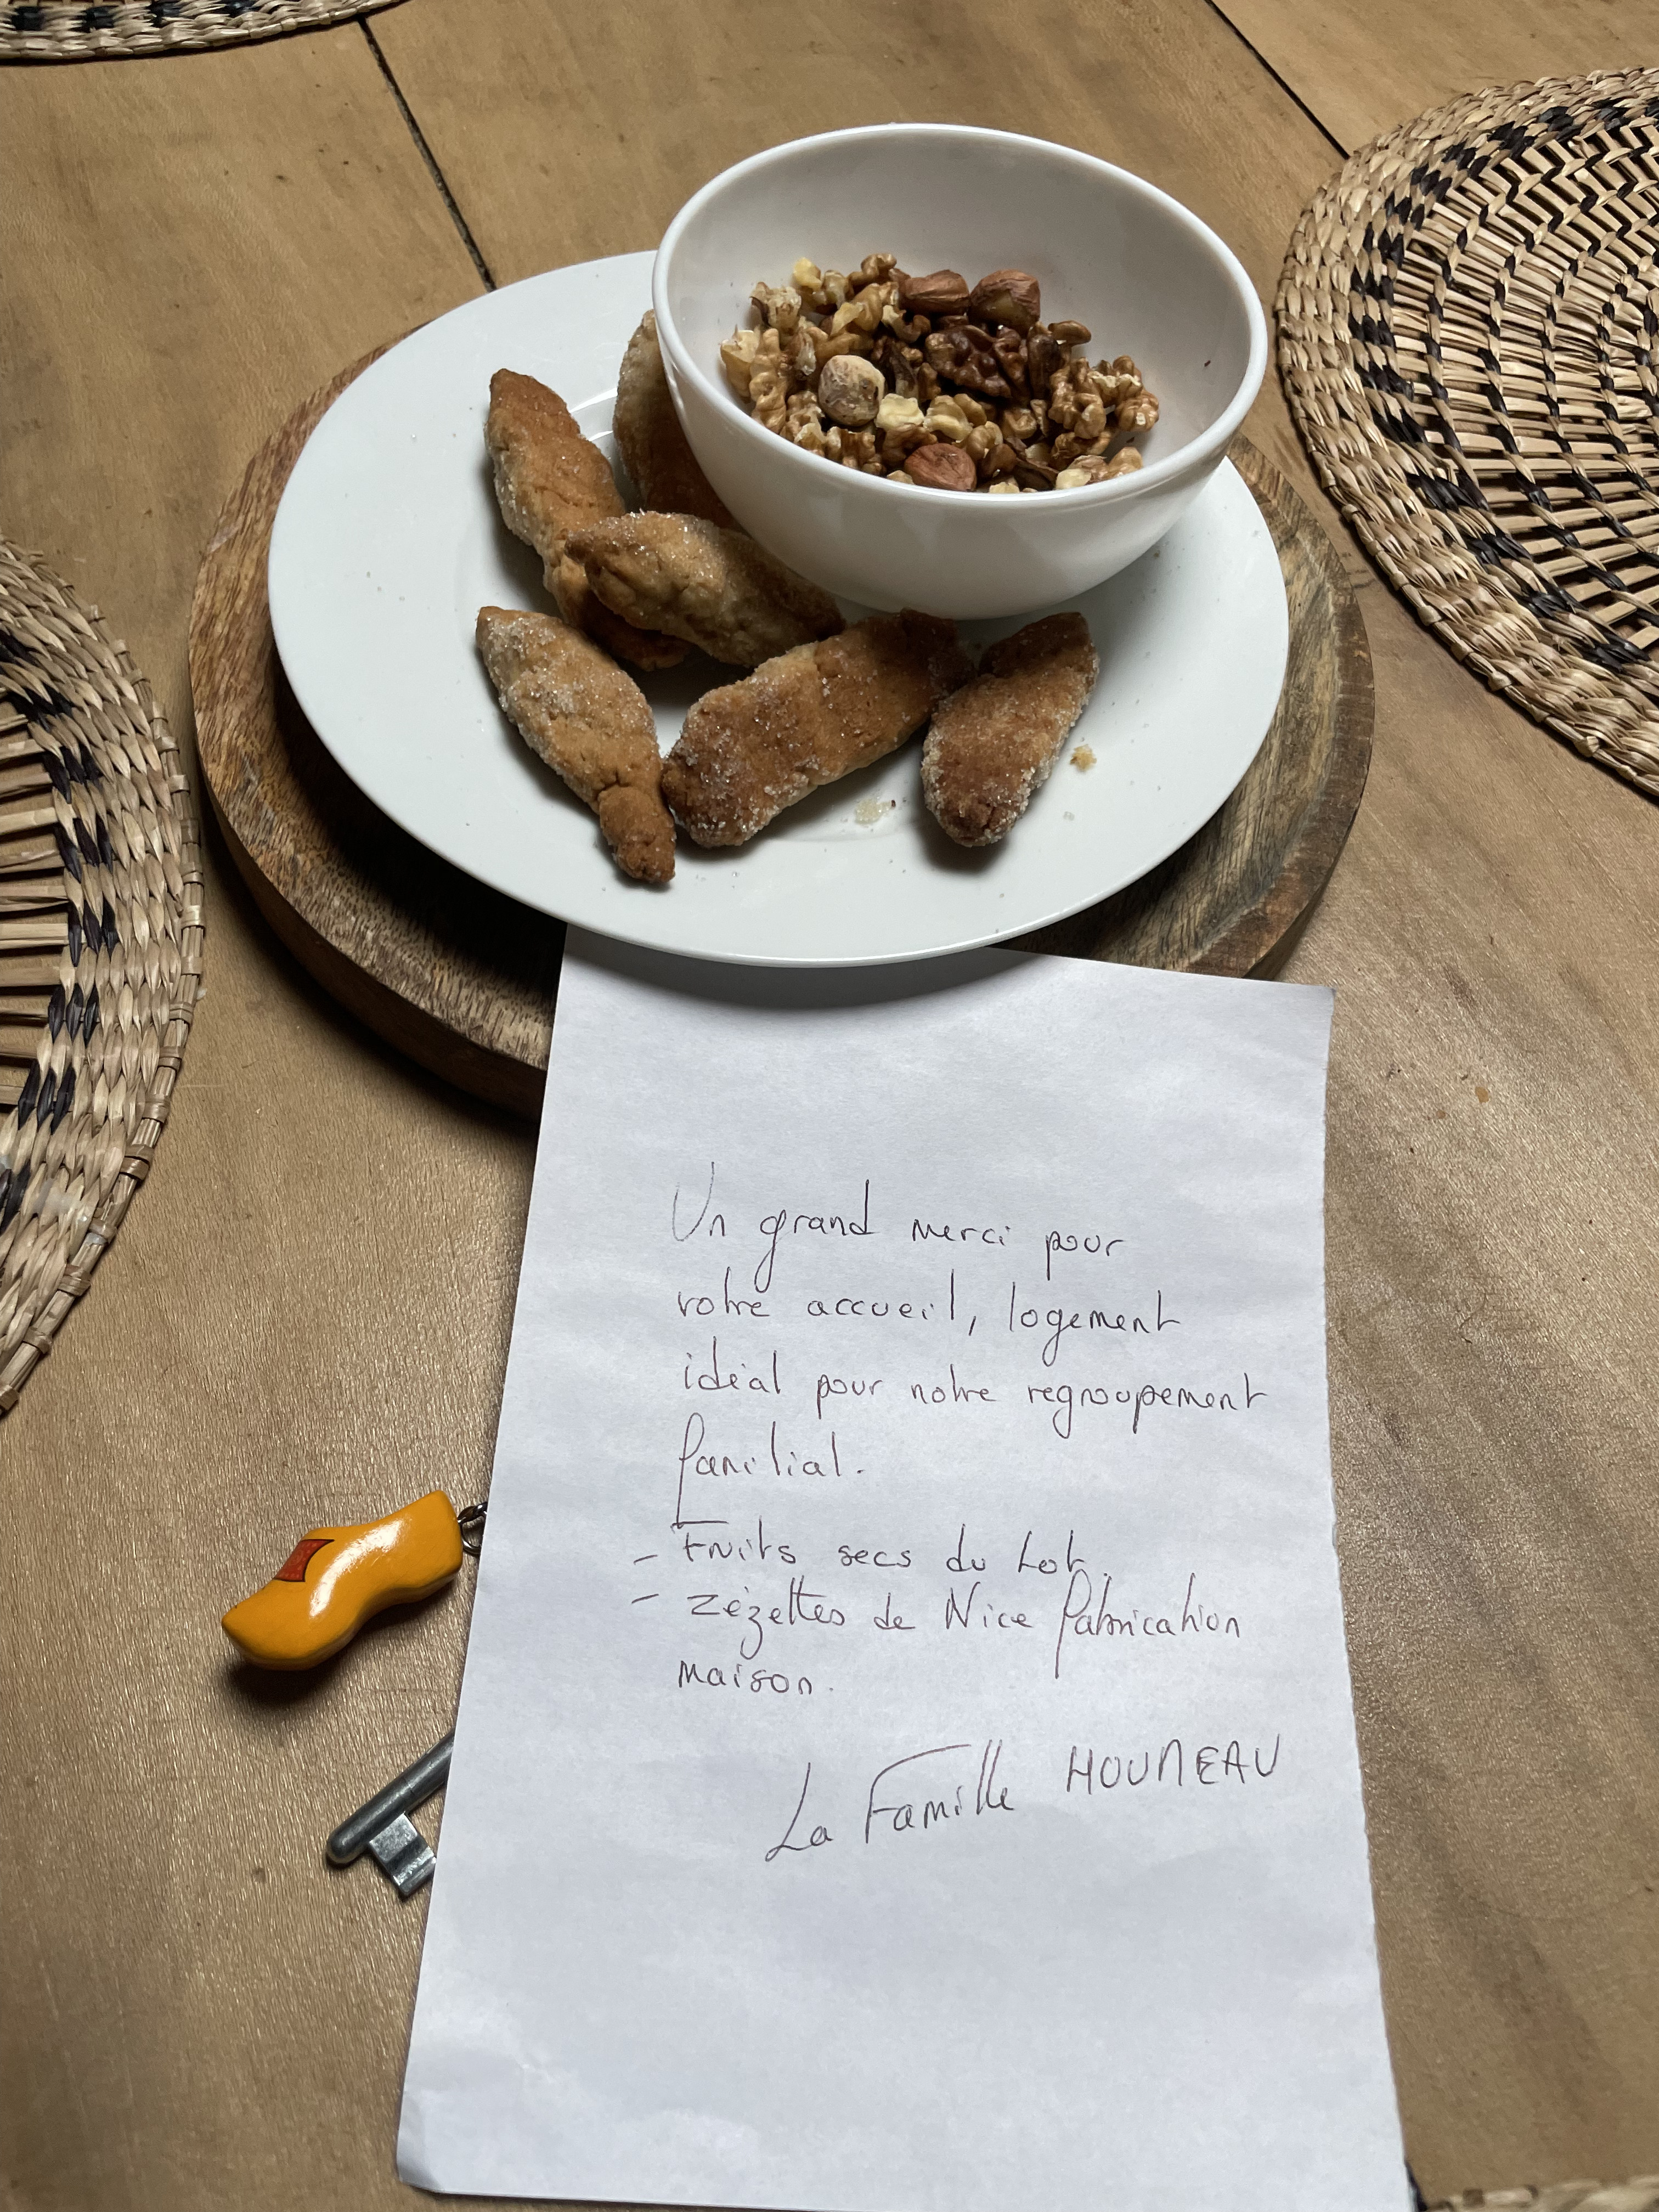 Un grand merci pour
votre accueil, logement
idéal pour notre regroupement
familial.
- Fruits secs du Lot.
- Zézettes de Nice fabrication
maison.
La Famille HOUNEAU